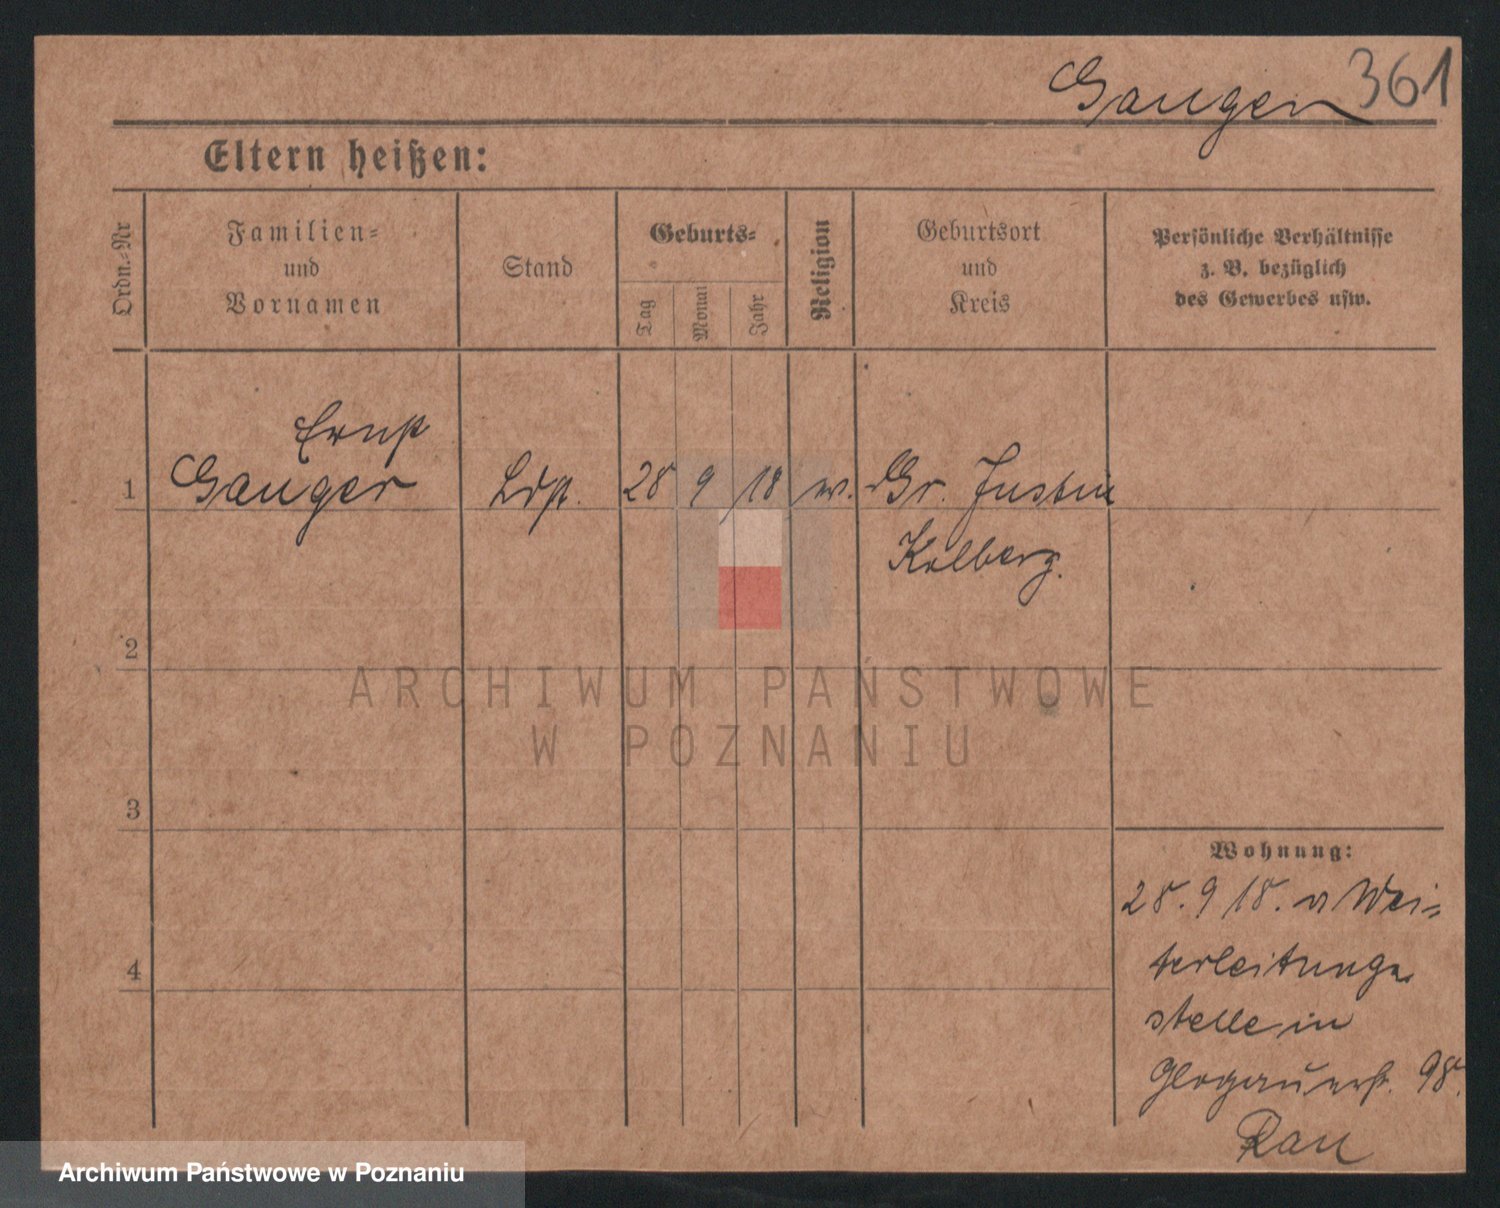 361
Ganger
Eltern heißen:
Ordn.-Nr
Familien-
und
Vornamen
Stand
Geburts-
Tag
Monat
Jahr
Religion
Geburtsort
und
Kreis
Persönliche Verhältnisse
z. B. bezüglich
des Gewerbes usw.
Ernst
1 Ganger 28 9 18 Gr. Justin
Kolberg.
2
3
4
Wohnung:
28. 9 18. Wei-
terleitungs
stelle in
Glogauerst. 98.
Rau
ARCHIWUM PAŃSTWOWE
W POZNANIU
Archiwum Państwowe w Poznaniu